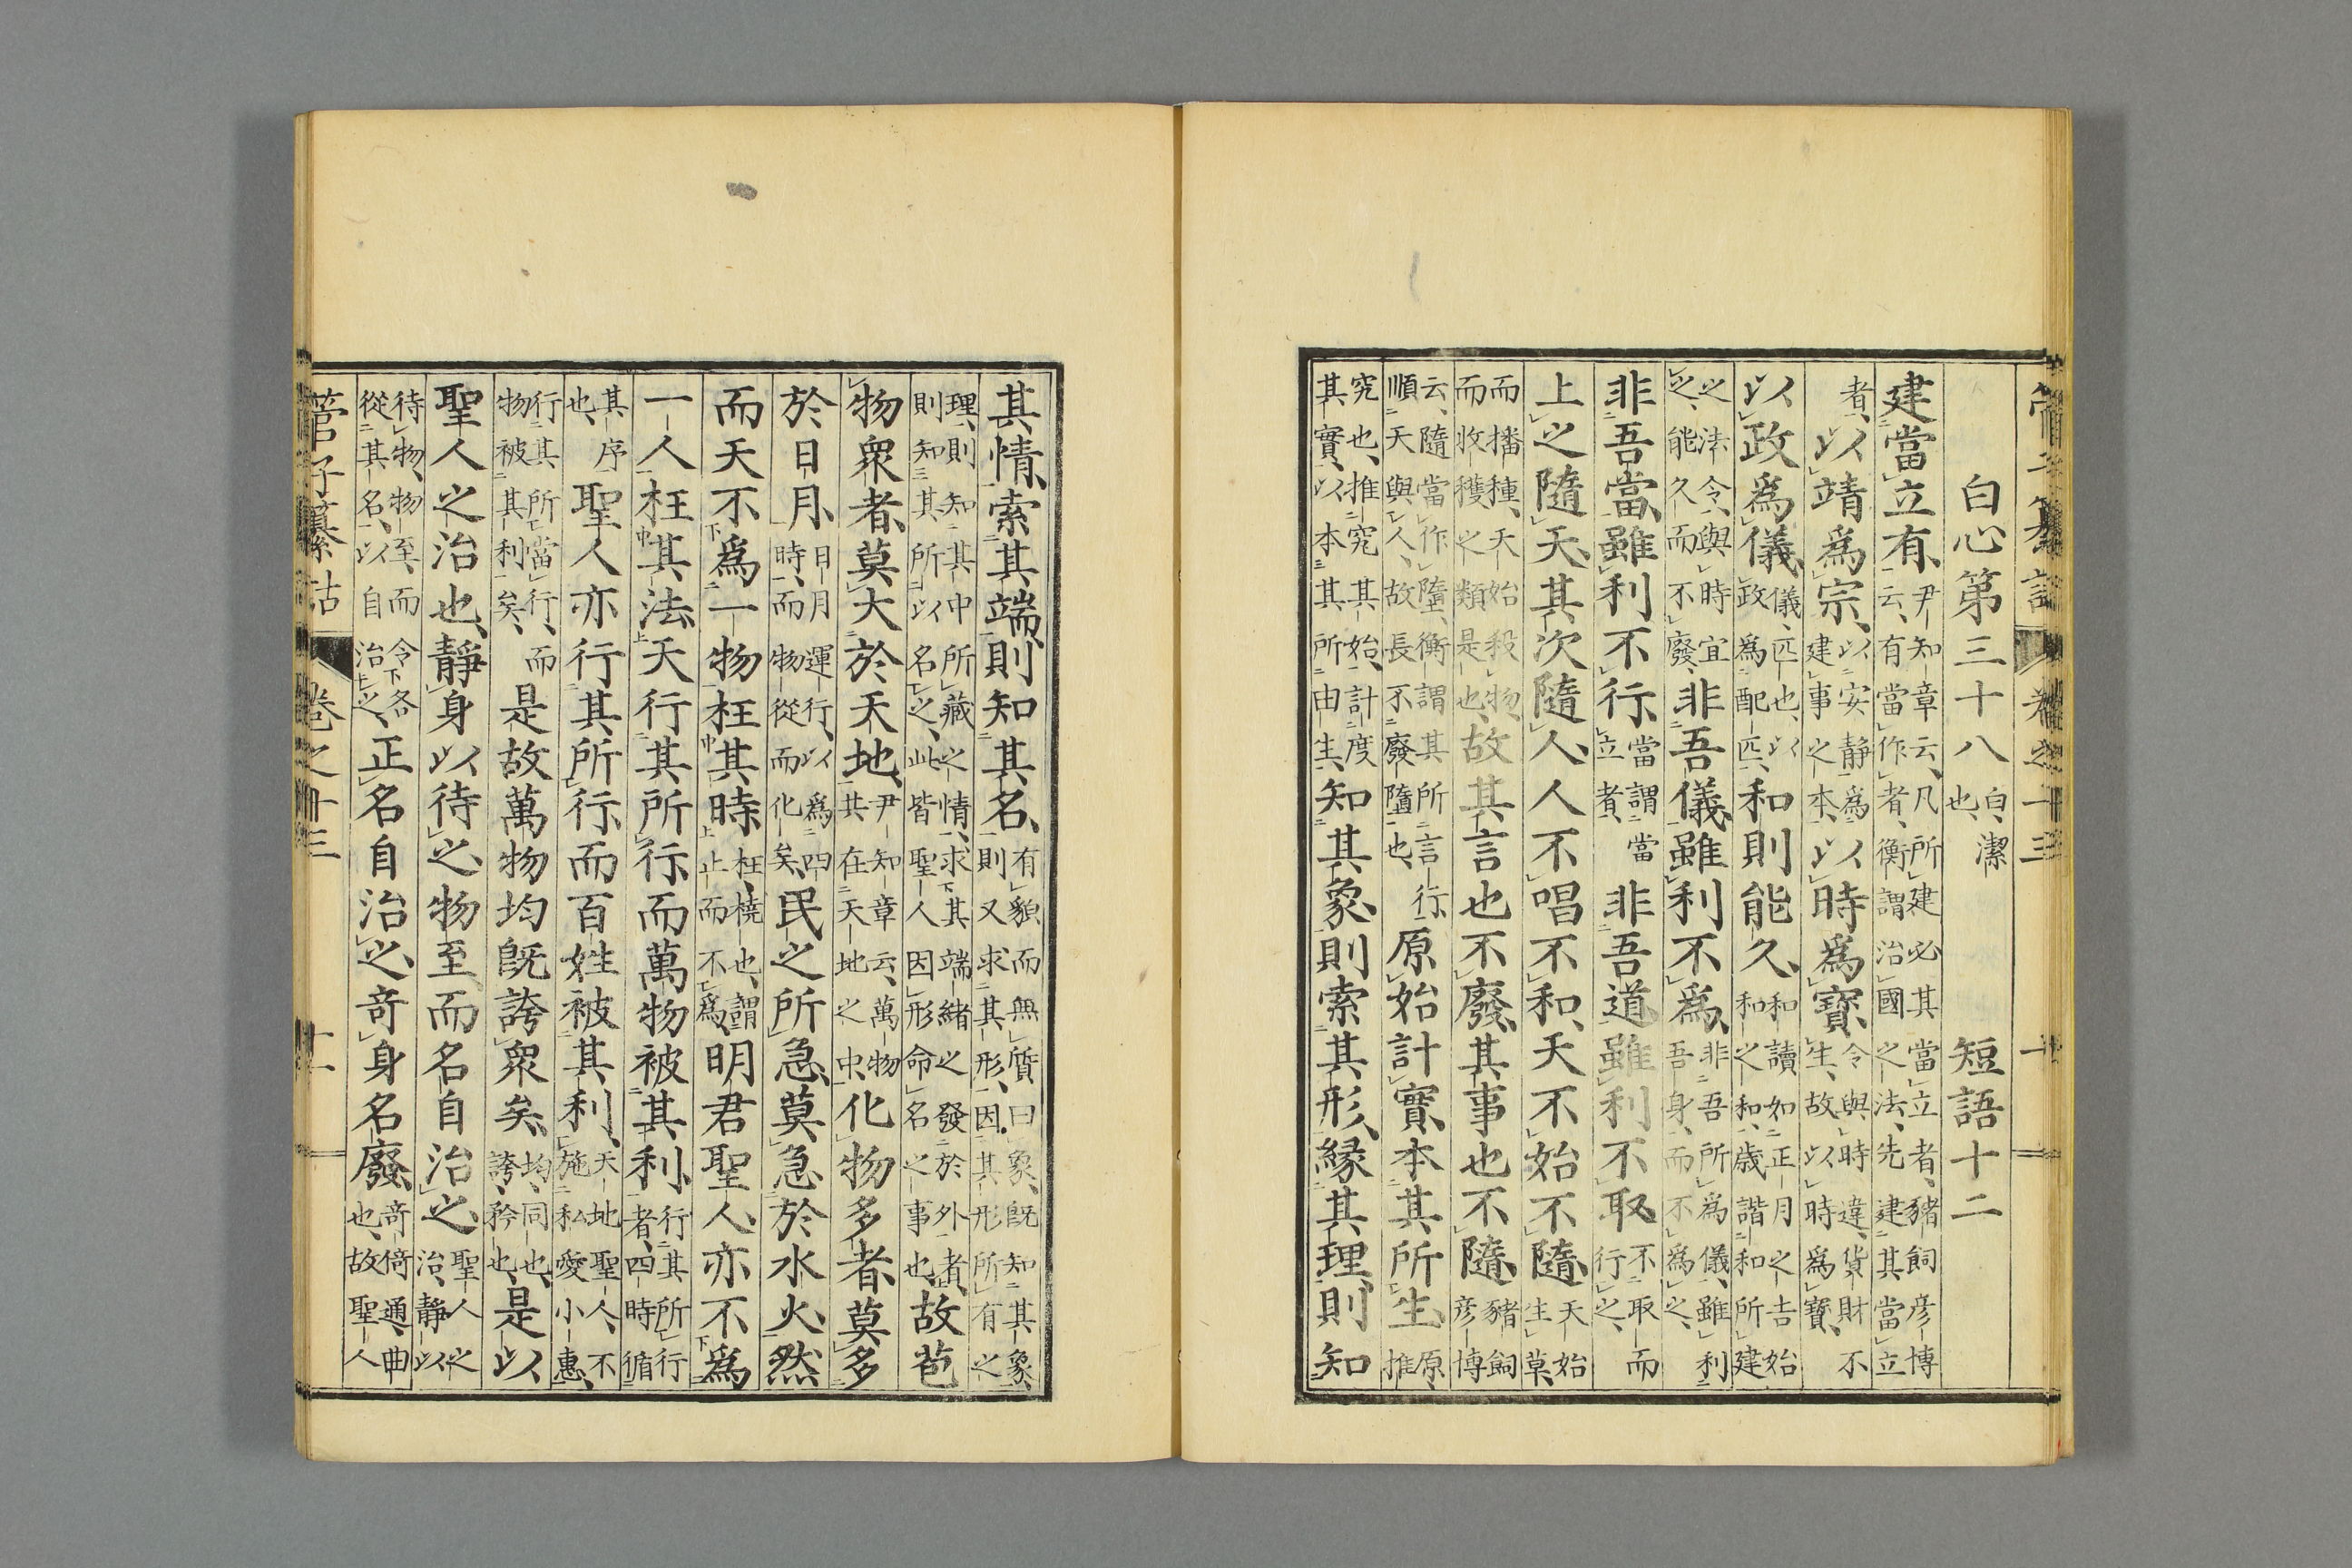 管子纂詁 卷之十三 十
白心第三十八 白、潔也、 短語十二
建當立有、尹知章云、凡所建必其當立者、豬飼彥博云、有當作者、衡謂治國之法、先建其當立
者、以靖爲宗、以安靜爲建事之本、以時爲寶、令與時違、貨財不生、故以時爲寶、
以政爲儀、儀、匹也、以政爲配匹、和則能久、和讀如正月之吉始和之和、歲諧和所建
之法令、與時宜之、能久而不廢、非吾儀雖利不爲、非吾所爲儀、雖利吾身、而不爲之、
非吾當、雖利不行、當謂當立者、非吾道、雖利不取、不取而行之、
上之隨天、其次隨人、人不唱不和、天不始不隨、天始生草、
而播種、天始殺物、而收穫之類是也、故其言也不廢、其事也不隨、豬飼彥博
云、隨當作墮、衡謂其所言行順天與人、故長不廢墮也、原始計實、本其所生、原、推
究也、推究其始、計度其實、以本其所由生、知其象、則索其形、緣其理、則知
其情、索其端、則知其名、有貌而無質曰象、既知其象、則又求其形、因其形所有之
理、則知其中所藏之情、求其端緒之發於外者、則知其所以名之、此皆聖人因形命名之事也、故苞
物衆者、莫大於天地、尹知章云、萬物其在天地之中、化物多者、莫多
於日月、日月運行、以爲四時、而物從而化矣、民之所急、莫急於水火、然
而天不爲一物枉其時、枉、橈也、謂止而不爲、明君聖人、亦不爲
一人枉其法、天行其所行、而萬物被其利、行其所行者、四時循
其序也、聖人亦行其所行、而百姓被其利、天地聖人、不施私愛小惠、
行其所當行、而物被其利矣、是故萬物均既誇衆矣、均、同也、誇、矜也、是以
聖人之治也、靜身以待之、物至而名自治之、聖人之治、靜以
待物、物至、而令各從其名、以自治之、正名自治之、奇身名廢、奇、倚通、曲也、故聖人
管子纂詁 卷之十三 十一